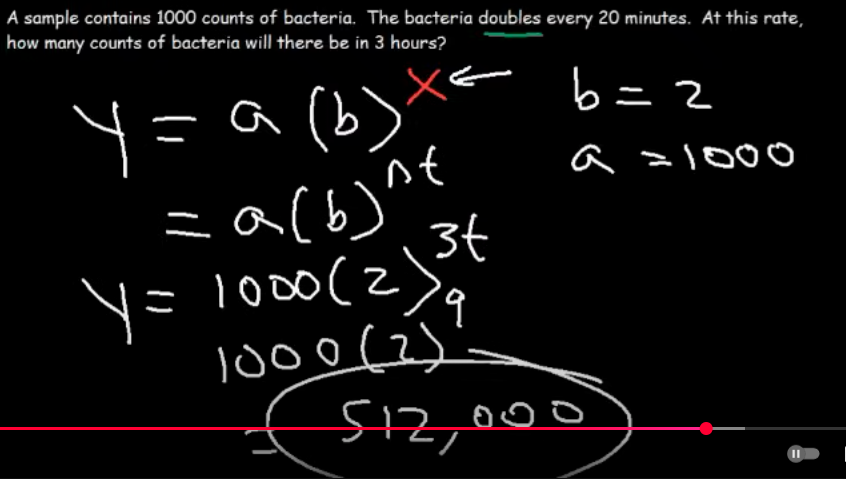 A sample contains 1000 counts of bacteria. The bacteria doubles every 20 minutes. At this rate,
how many counts of bacteria will there be in 3 hours?
y = a (b)^x
b = 2
a = 1000
= a(b)^nt
y = 1000(2)^3t
1000(2)^9
= 512,000